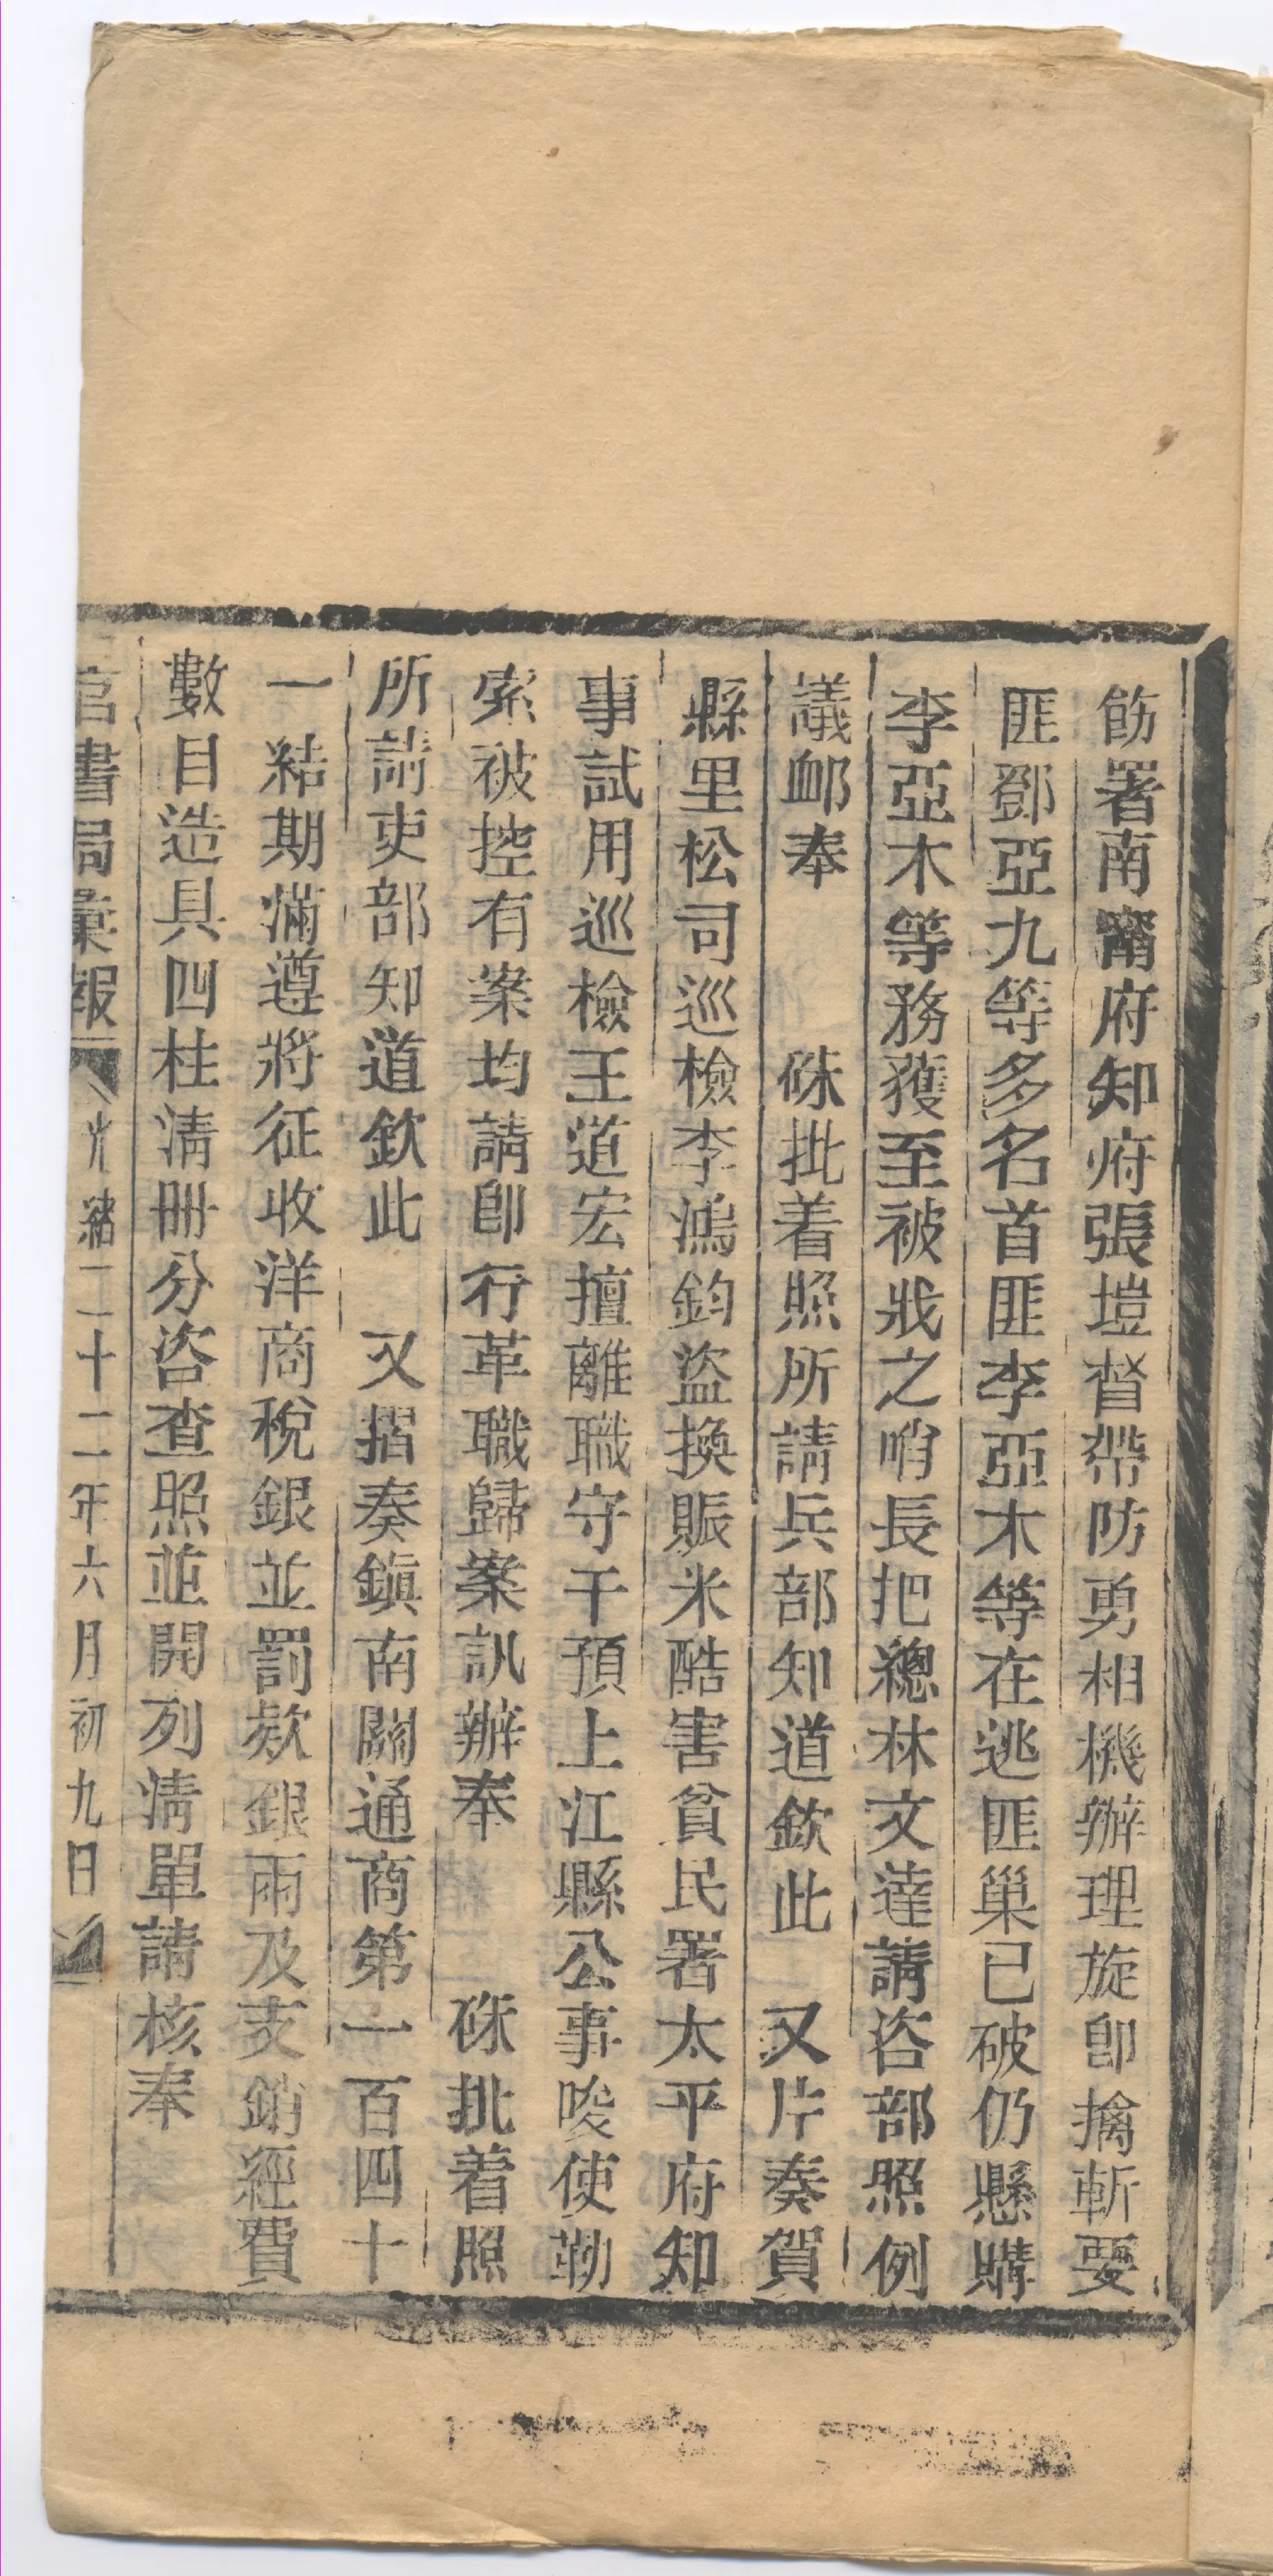 飭署南甯府知府張塏督帶防勇相機辦理旋卽擒斬要
匪鄧亞九等多名首匪李亞木等在逃匪巢已破仍懸購
李亞木等務獲至被戕之哨長把總林文達請咨部照例
議邮奉　　硃批着照所請兵部知道欽此　又片奏賀
縣里松司巡檢李鴻鈞盜換賑米酷害貧民署太平府知
事試用巡檢王道宏擅離職守干預上江縣公事唆使勒
索被控有案均請卽行革職歸案訊辦奉　　硃批着照
所請吏部知道欽此　又摺奏鎮南關通商第一百四十
一結期滿遵將征收洋商稅銀並罰欵銀兩及支銷經費
數目造具四柱清冊分咨查照並開列清單請核奉
官書局彙報　光緒二十二年六月初九日